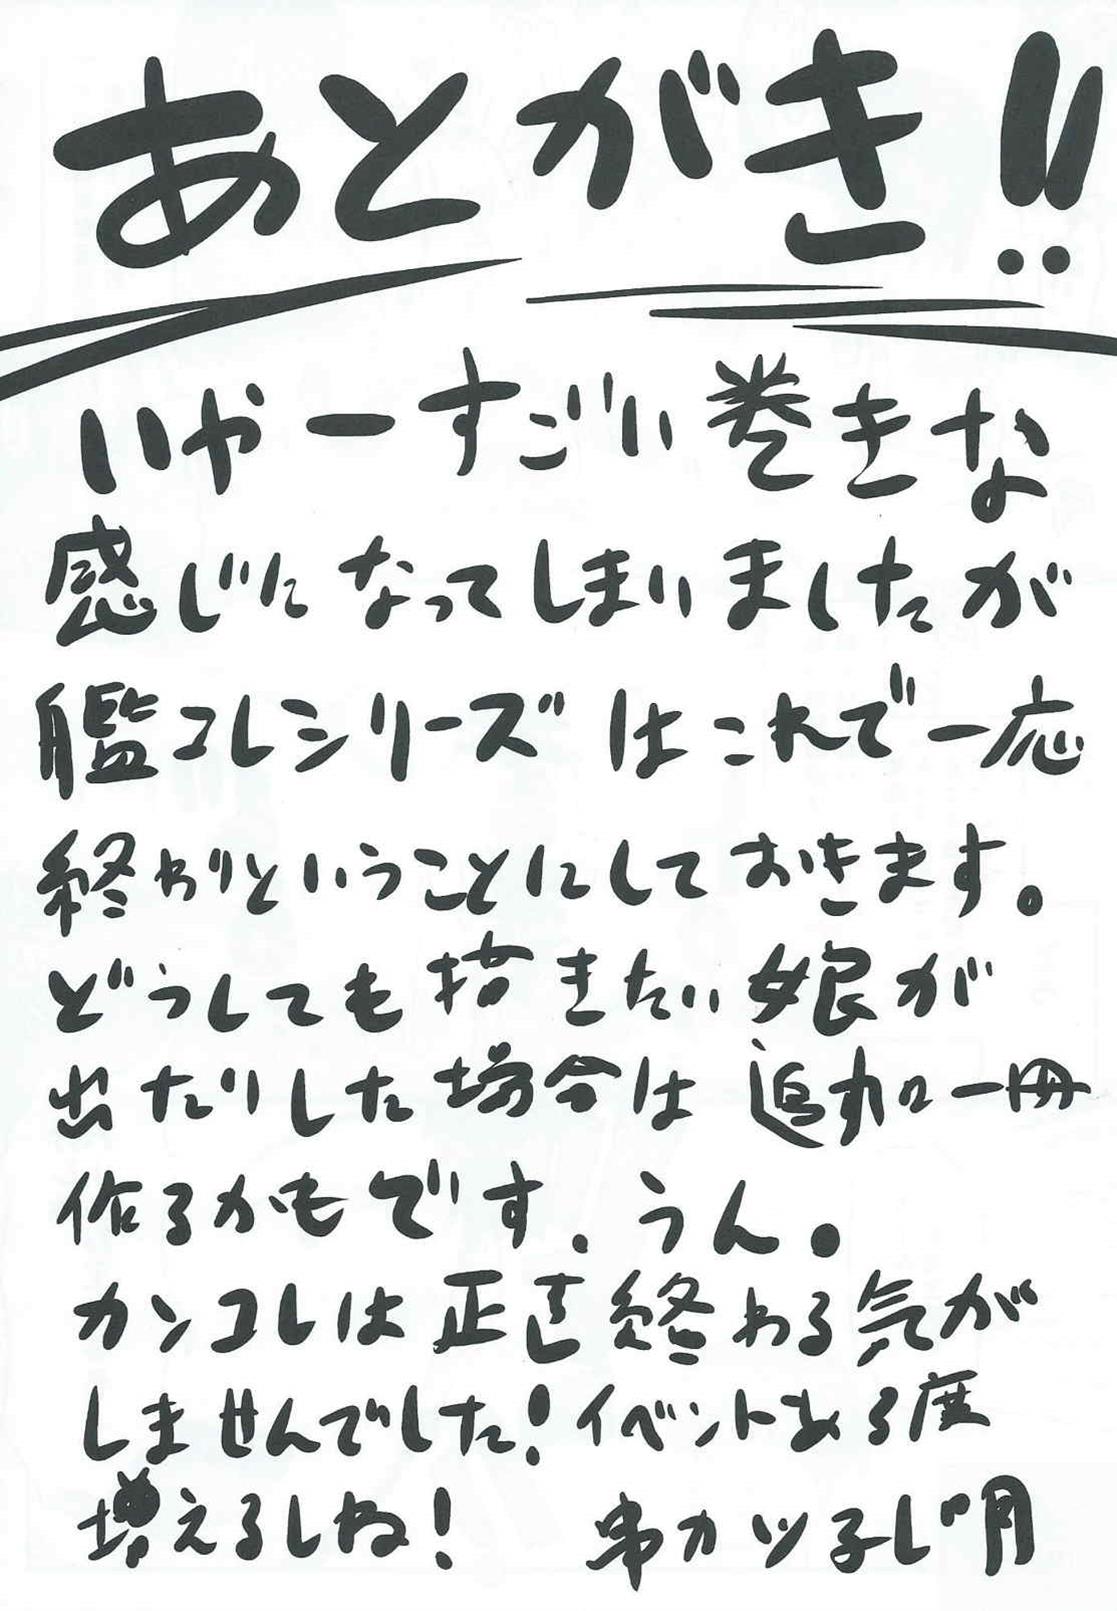 あとがき!!
いやーすごい巻きな
感じになってしまいましたが
艦コレシリーズはこれで一応
終わりということにしておきます。
どうしても描きたい娘が
出たりした場合は追加一冊
作るかもです.うん。
カンコレは正直終わる気が
しませんでした!イベントある度
増えるしね! 串カツ子じ明